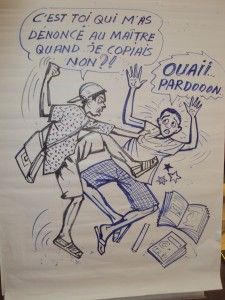 C'EST TOI QUI M'AS
DENONCÉ AU MAÎTRE
QUAND JE COPIAIS
NON?!
OUAIII
PARDOOON..